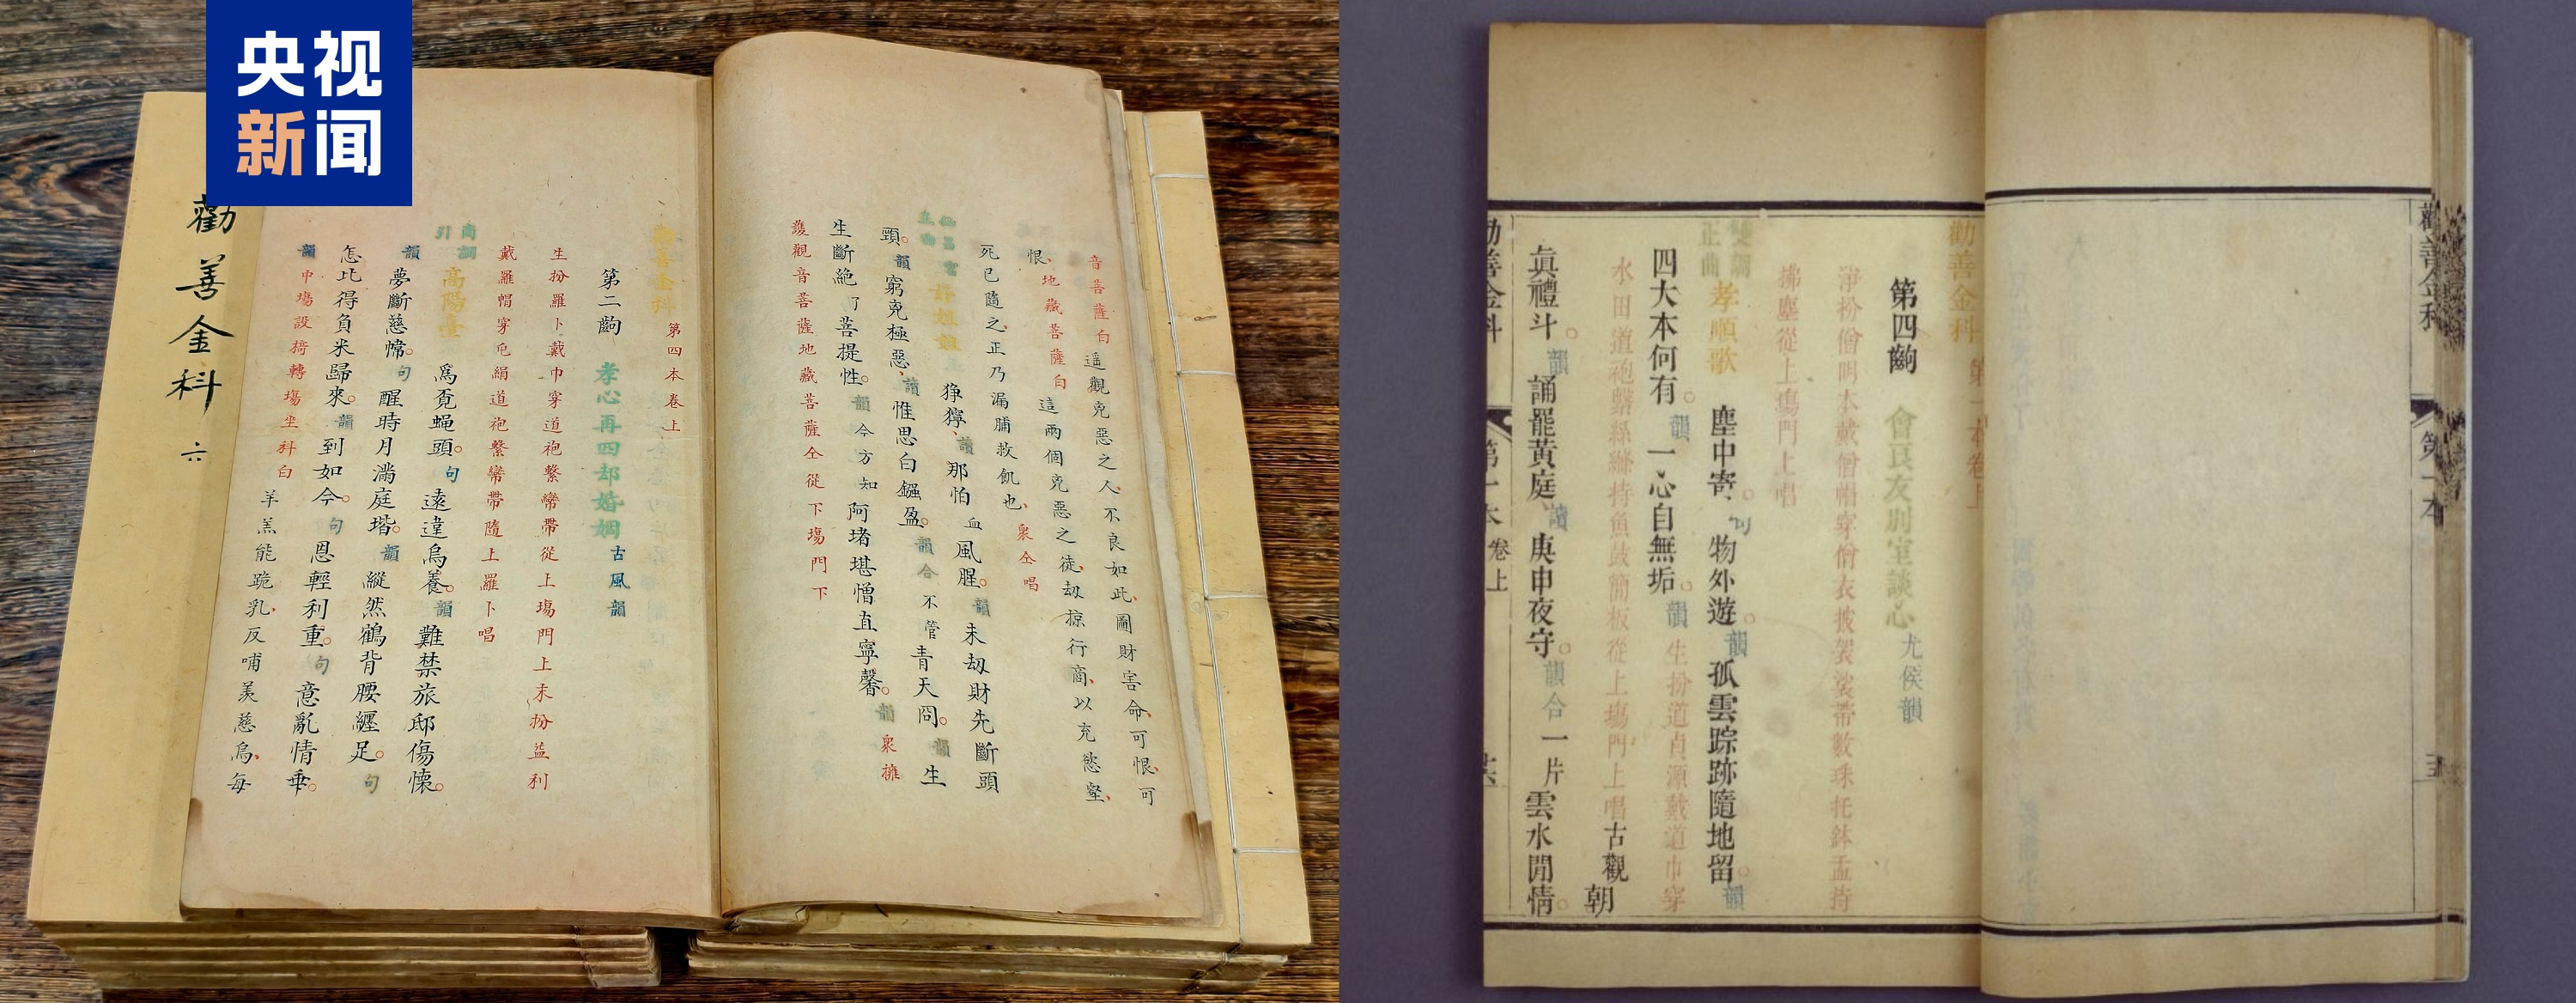 央视
新闻
勸善金科 六
音菩薩白 遥觀兇惡之人不良如此圖財害命可恨可
恨地藏菩薩白 這兩個兇惡之徒劫掠行商以充慾壑
死已隨之正乃漏脯救飢也衆仝唱
猙獰讀那怕血風腥韻未劫財先斷頭
頸韻窮兇極惡讀惟思白鏹盈韻合不管青天冏韻生
生斷絶了菩提性韻今方知阿堵堪憎直寧馨韻衆擁
護觀音菩薩地藏菩薩仝從下塲門下
勸善金科 第四本卷上
第二齣 孝心再四却婚姻 古風韻
生扮羅卜戴巾穿道袍繫帶從上塲門上末扮益利
戴羅帽穿屯絹道袍繫帶隨上羅卜唱
商調引 高陽臺 爲覓蝇頭句遠違烏養韻難禁旅邸傷懷
韻夢斷慈幃句醒時月滿庭堦韻縱然鶴背腰纏足句
怎比得負米歸來韻到如今句恩輕利重句意亂情乖
韻中塲設椅轉塲坐科白 羊羔能跪乳反哺羡慈烏每
勸善金科 第一本卷上
第四齣 會良友別室談心 尤侯韻
淨扮僧明本戴僧帽穿僧衣披袈裟帶數珠托鉢盂持
拂塵從上塲門上唱
雙調正曲 孝順歌 塵中寄句物外遊韻孤雲踪跡隨地留韻
四大本何有韻一心自無垢韻生扮道貞源戴道巾穿
水田道袍繫絲縧持魚鼓簡板從上塲門上唱古觀朝
眞禮斗韻誦罷黃庭讀庚申夜守韻合一片雲水閒情
勸善金科 第一本卷上
勸善金科 第一本